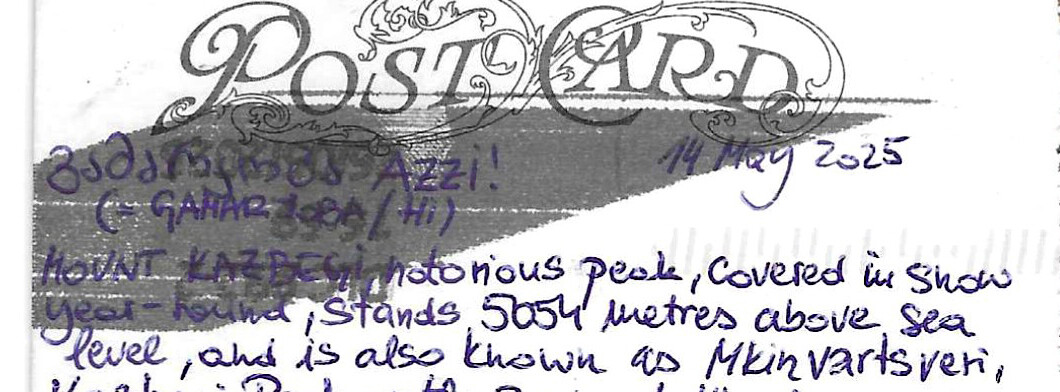 POST CARD
გამარჯობა Azzi!
14 May 2025
(= GAMARJOBA / Hi)
MOUNT KAZBEGI, notorious peak, covered in snow
year-round, stands 5054 metres above sea
level, and is also known as Mkinvartsveri,